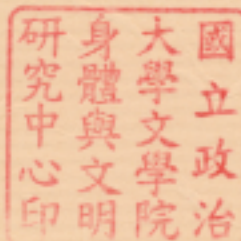 國立政治
大學文學院
身體與文明
研究中心印